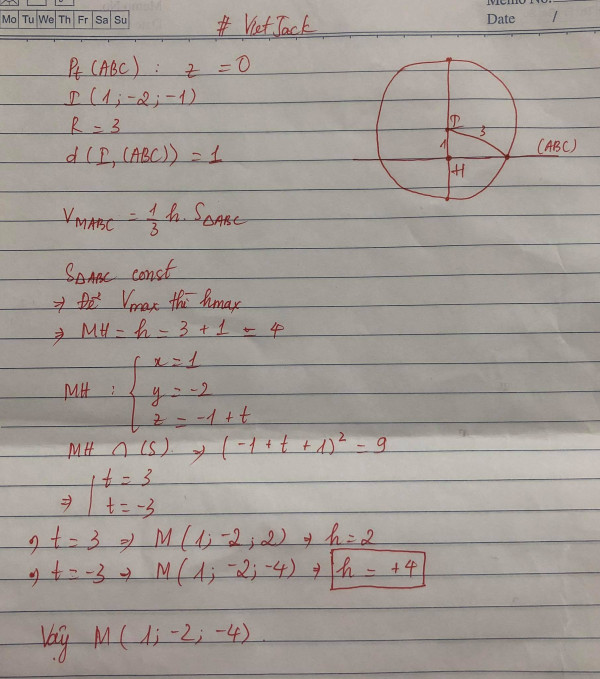 Mo Tu We Th Fr Sa Su
Memo No.
Date /
# VietJack
Pt (ABC) : z = 0
I (1; -2; -1)
R = 3
d (I, (ABC)) = 1
I
3
1
H
(ABC)
V_MABC = 1/3 h. S_ΔABC
S_ΔABC const
⇒ Để V_max thì h_max
⇒ MH = h = 3 + 1 = 4
MH : { x = 1
y = -2
z = -1 + t
MH ∩ (S) ⇒ (-1 + t + 1)² = 9
⇒ [ t = 3
t = -3
, t = 3 ⇒ M (1; -2; 2) ⇒ h = 2
, t = -3 ⇒ M (1; -2; -4) ⇒ h = +4
Vậy M (1; -2; -4)